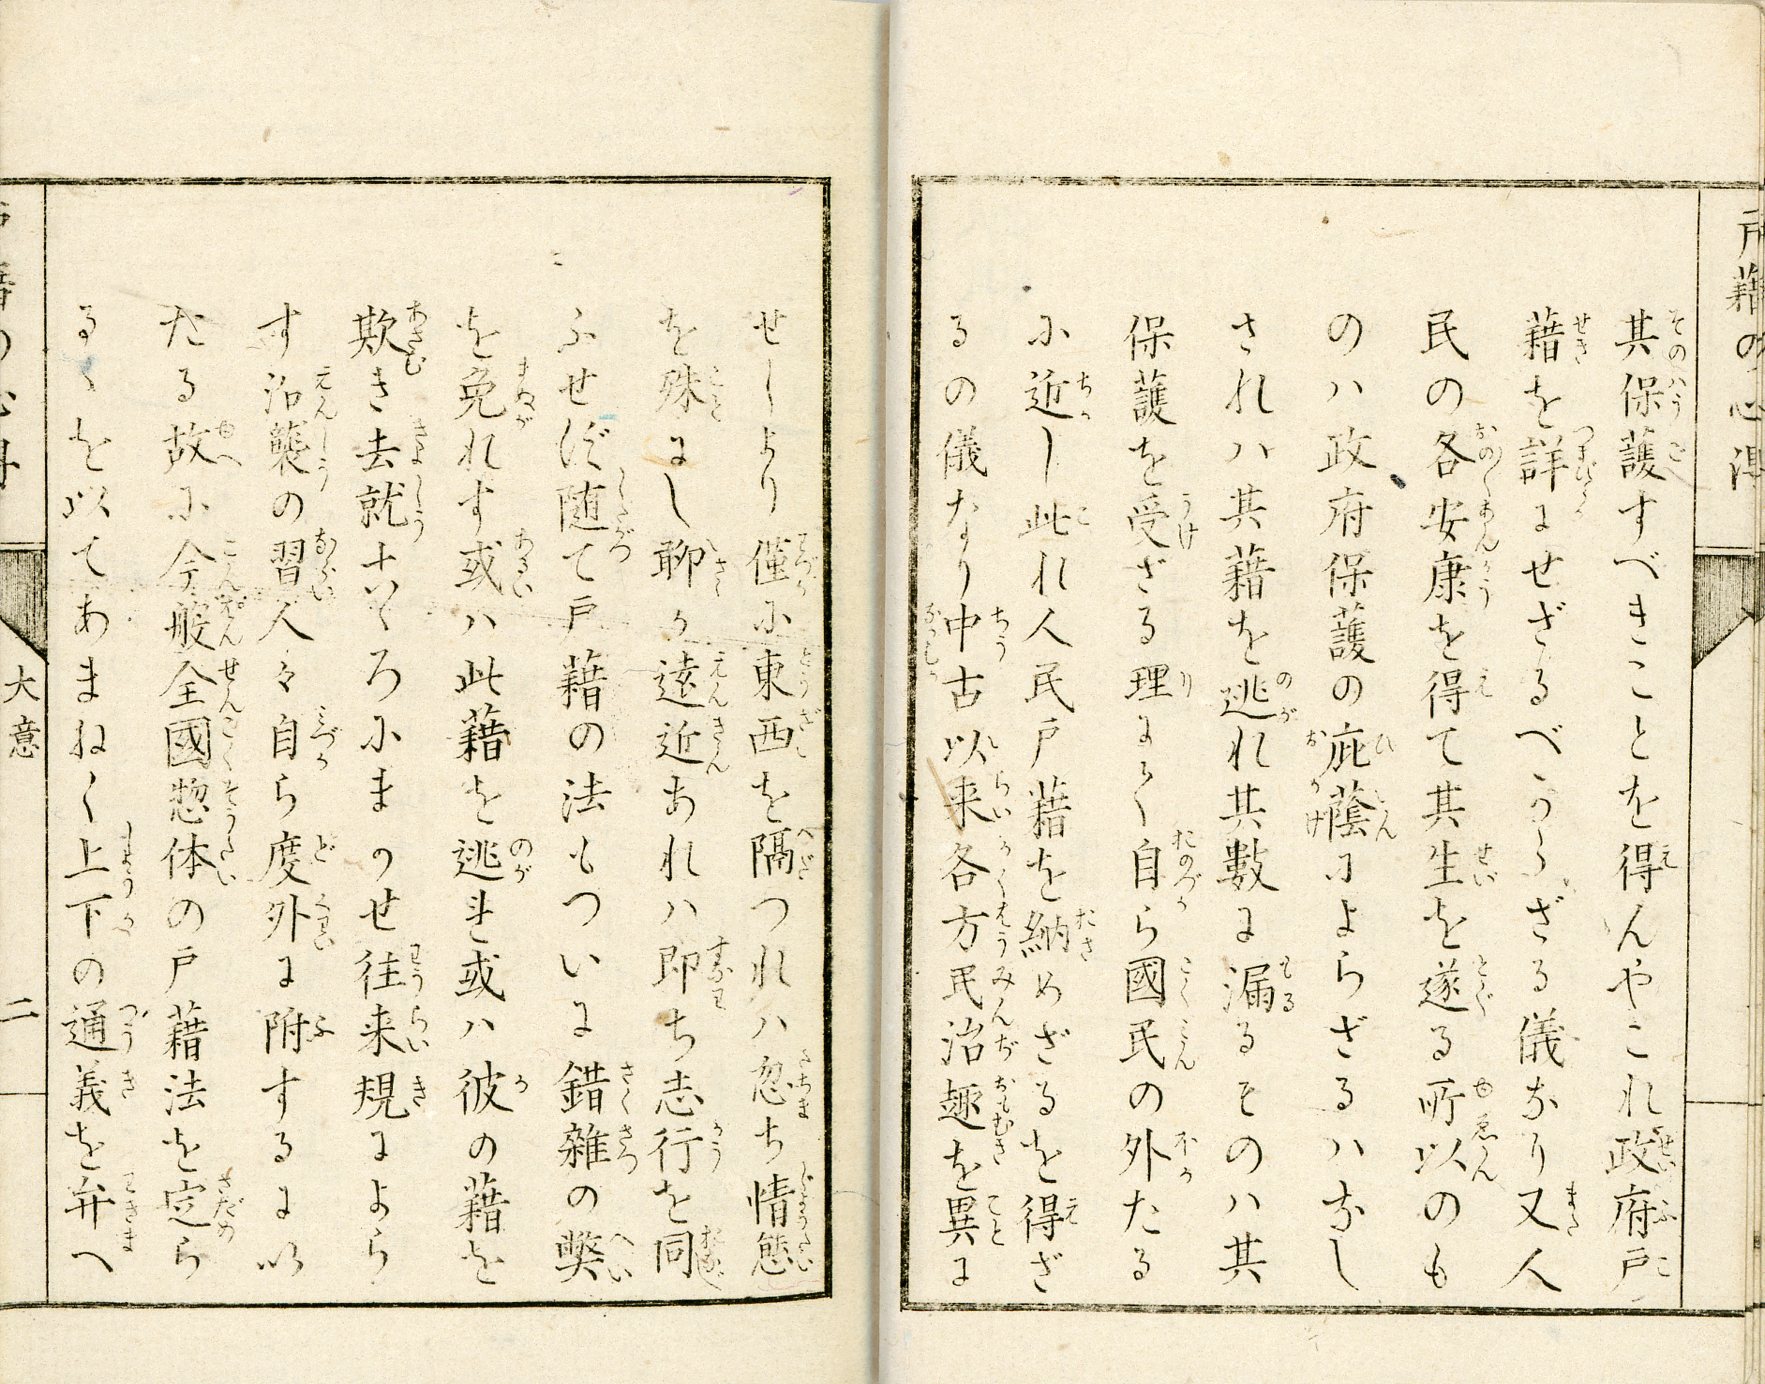 戸籍の心得
其保護すべきことを得んやこれ政府戸
籍を詳にせざるべからざる儀なり又人
民の各安康を得て其生を遂る所以のも
のハ政府保護の庇蔭によらざるハなし
されハ其籍を逃れ其數に漏るものハ其
保護を受ざる理にて自ら國民の外たる
に近し此れ人民戸籍を納めざるを得ざ
るの儀なり中古以来各方民治趣を異に
せしより僅に東西を隔つれハ忽ち情態
を殊にし聊か遠近あれハ即ち志行を同
ふせず随て戸籍の法もついに錯雜の弊
を免れす或ハ此籍を逃れ或ハ彼の籍を
欺き去就こゝろにまかせ往来規によら
す沿襲の習人々自ら度外に附するにい
たる故に今般全國惣体の戸籍法を定ら
るゝを以てあまねく上下の通義を弁へ
大意
二